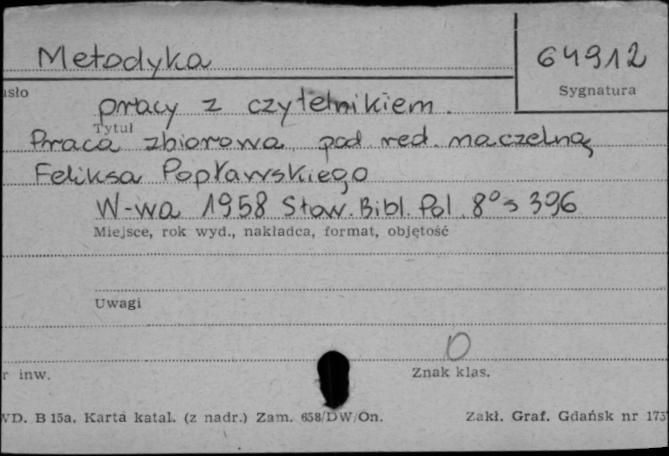 Metodyka
64912
asło
Sygnatura
pracy z czytelnikiem.
Tytuł
Praca zbiorowa pod red. naczelną
Feliksa Popławskiego
W-wa 1958 Stow. Bibl. Pol. 8° s 396
Miejsce, rok wyd., nakładca, format, objętość
Uwagi
0
r inw.
Znak klas.
WD. B 15a. Karta katal. (z nadr.) Zam. 658/DW/On.
Zakł. Graf. Gdańsk nr 173